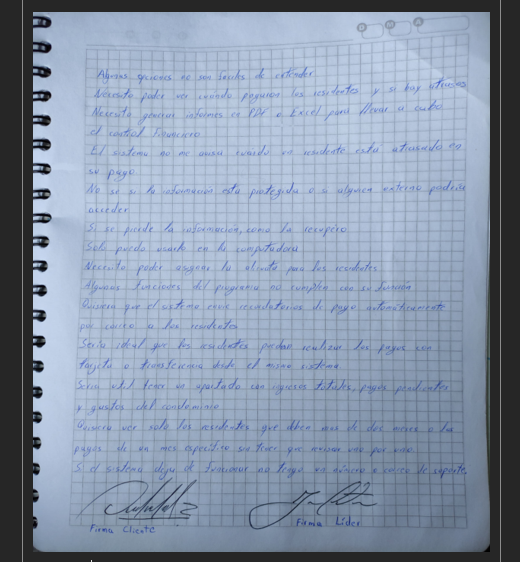 D M A
Algunas opciones no son fáciles de entender
Necesito poder ver cuándo pagaron los residentes y si hay atrasos
Necesito generar informes en PDF o Excel para llevar a cabo
el control financiero
El sistema no me avisa cuando un residente está atrasado en
su pago
No se si la información está protegida o si alguien externo podría
acceder
Si se pierde la información, como la recupero
Solo puedo usarlo en la computadora
Necesito poder asignar la alicuota para los residentes
Algunas funciones del programa no cumplen con su función
Quisiera que el sistema envie recordatorios de pago automáticamente
por correo a los residentes
Sería ideal que los residentes puedan realizar los pagos con
tarjeta o transferencia desde el mismo sistema
Sería util tener un apartado con ingresos totales, pagos pendientes
y gastos del condominio
Quisiera ver solo los residentes que deben mas de dos meses o los
pagos de un mes especifico sin tener que revisar uno por uno
Si el sistema deja de funcionar no tengo un número o correo de soporte.
Firma Cliente
Firma Líder